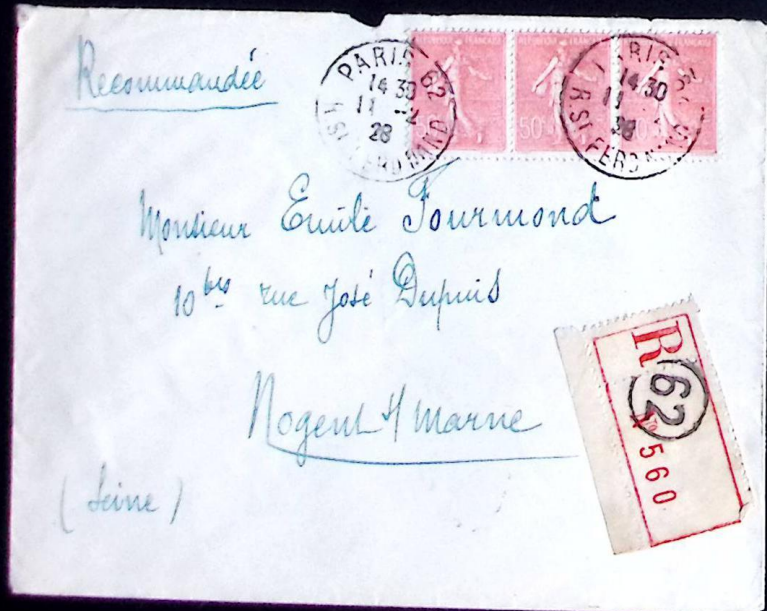 Recommandée
PARIS 62
14 30
11 -2
28
R. ST FERDINAND
RÉPUBLIQUE FRANÇAISE
50
PARIS
14 30
11
28
R. ST FERDINAND
Monsieur Emile Fourmond
10 bis rue José Dupuis
Nogent s/ Marne
(Seine)
R
62
No 560